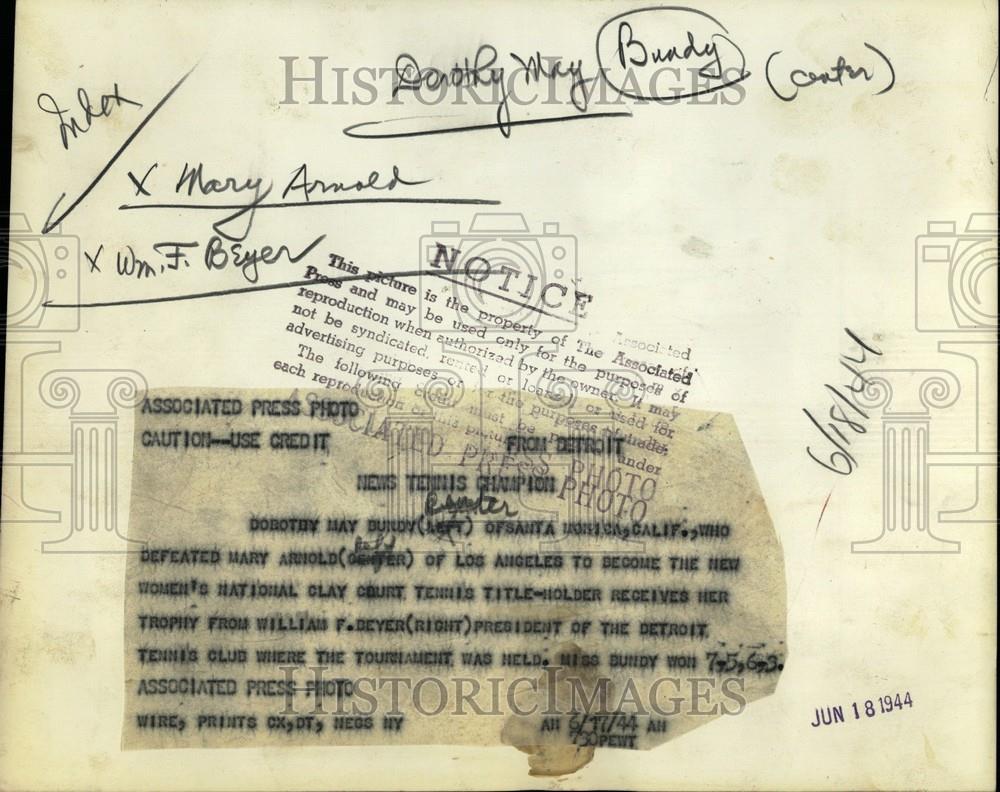 Dorothy May Bundy (center)
Index
x Mary Arnold
x Wm. F. Beyer
NOTICE
This picture is the property of The Associated
Press and may be used only for the purposes of
reproduction when authorized by the owner. It may
not be syndicated, rented or loaned, or used for
advertising purposes or for the purposes of trade.
The following credit must be under
each reproduction of this picture
Associated
ASSOCIATED PRESS PHOTO
PHOTO
6/18/44
ASSOCIATED PRESS PHOTO
CAUTION--USE CREDIT FROM DETROIT
NEWS TENNIS CHAMPION
center
DOROTHY MAY BUNDY(LEFT) OFSANTA MONICA,CALIF.,WHO
DEFEATED MARY ARNOLD(CENTER) OF LOS ANGELES TO BECOME THE NEW
WOMEN'S NATIONAL CLAY COURT TENNIS TITLE-HOLDER RECEIVES HER
TROPHY FROM WILLIAM F.BEYER(RIGHT)PRESIDENT OF THE DETROIT
TENNIS CLUB WHERE THE TOURNAMENT WAS HELD. MISS BUNDY WON 7,5,6,3.
ASSOCIATED PRESS PHOTO
WIRE, PRINTS CX,DT, NEGS NY AH 6/17/44 AH
730PEWT
JUN 18 1944
HISTORICIMAGES
HISTORICIMAGES